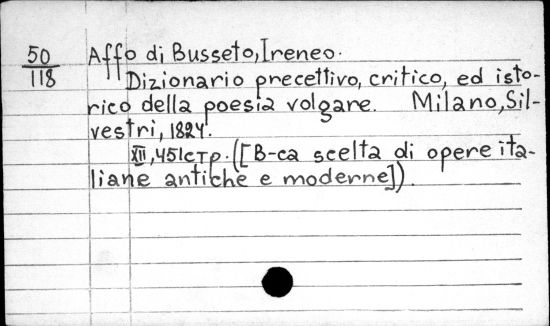 50
118
Affo di Busseto, Ireneo.
Dizionario precettivo, critico, ed isto-
rico della poesia volgare. Milano, Sil-
vestri, 1824.
XII, 451 стр. ([B-ca scelta di opere ita-
liane antiche e moderne]).